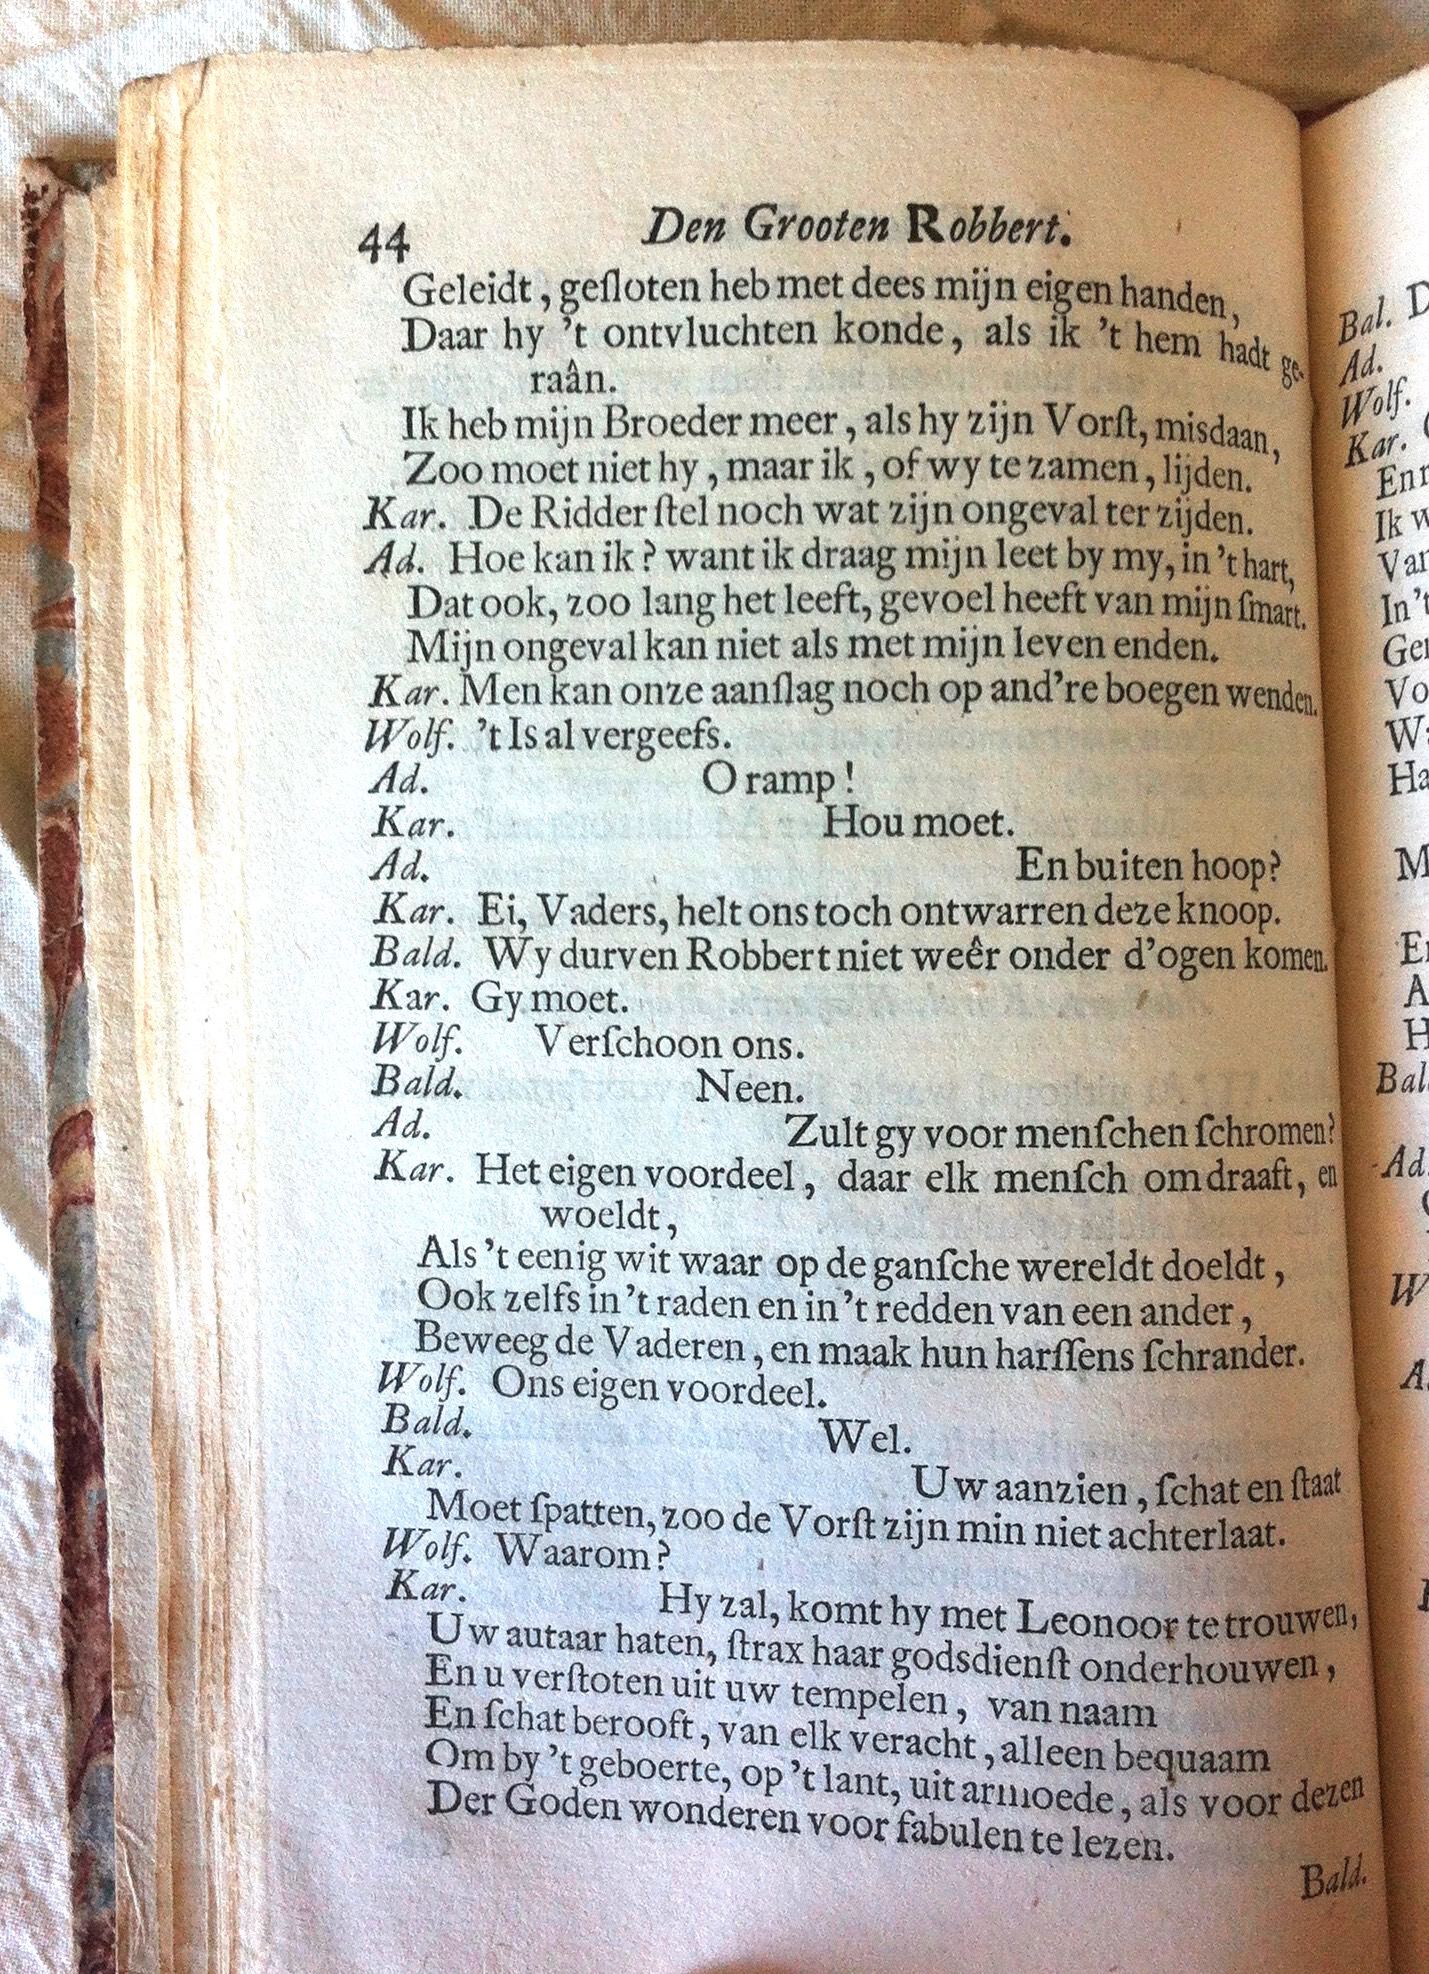 44 Den Grooten Robbert.
Geleidt, geſloten heb met dees mijn eigen handen,
Daar hy 't ontvluchten konde, als ik 't hem hadt ge-
raân.
Ik heb mijn Broeder meer, als hy zijn Vorſt, misdaan,
Zoo moet niet hy, maar ik, of wy te zamen, lijden.
Kar. De Ridder ſtel noch wat zijn ongeval ter zijden.
Ad. Hoe kan ik? want ik draag mijn leet by my, in 't hart,
Dat ook, zoo lang het leeft, gevoel heeft van mijn ſmart.
Mijn ongeval kan niet als met mijn leven enden.
Kar. Men kan onze aanſlag noch op and're boegen wenden.
Wolf. 't Is al vergeefs.
Ad. O ramp!
Kar. Hou moet.
Ad. En buiten hoop?
Kar. Ei, Vaders, helt ons toch ontwarren deze knoop.
Bald. Wy durven Robbert niet weêr onder d'ogen komen.
Kar. Gy moet.
Wolf. Verſchoon ons.
Bald. Neen.
Ad. Zult gy voor menſchen ſchromen?
Kar. Het eigen voordeel, daar elk menſch om draaft, en
woeldt,
Als 't eenig wit waar op de ganſche wereldt doeldt,
Ook zelfs in 't raden en in 't redden van een ander,
Beweeg de Vaderen, en maak hun harſſens ſchrander.
Wolf. Ons eigen voordeel.
Bald. Wel.
Kar. Uw aanzien, ſchat en ſtaat
Moet ſpatten, zoo de Vorſt zijn min niet achterlaat.
Wolf. Waarom?
Kar. Hy zal, komt hy met Leonoor te trouwen,
Uw autaar haten, ſtrax haar godsdienſt onderhouwen,
En u verſtoten uit uw tempelen, van naam
En ſchat berooft, van elk veracht, alleen bequaam
Om by 't geboerte, op 't lant, uit armoede, als voor dezen
Der Goden wonderen voor fabulen te lezen.
Bald.
Bal. D
Ad.
Wolf.
Kar.
En
Ik w
Van
In 't
Ge
Vo
Wa
Ha
M
En
A
H
Bal
Ad
W
A